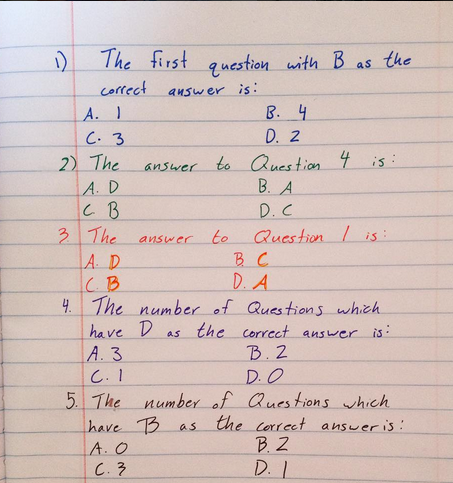 1) The first question with B as the
correct answer is:
A. 1 B. 4
C. 3 D. 2
2) The answer to Question 4 is:
A. D B. A
C B D. C
3. The answer to Question 1 is:
A. D B. C
C. B D. A
4. The number of Questions which
have D as the correct answer is:
A. 3 B. 2
C. 1 D. 0
5. The number of Questions which
have B as the correct answer is:
A. 0 B. 2
C. 3 D. 1